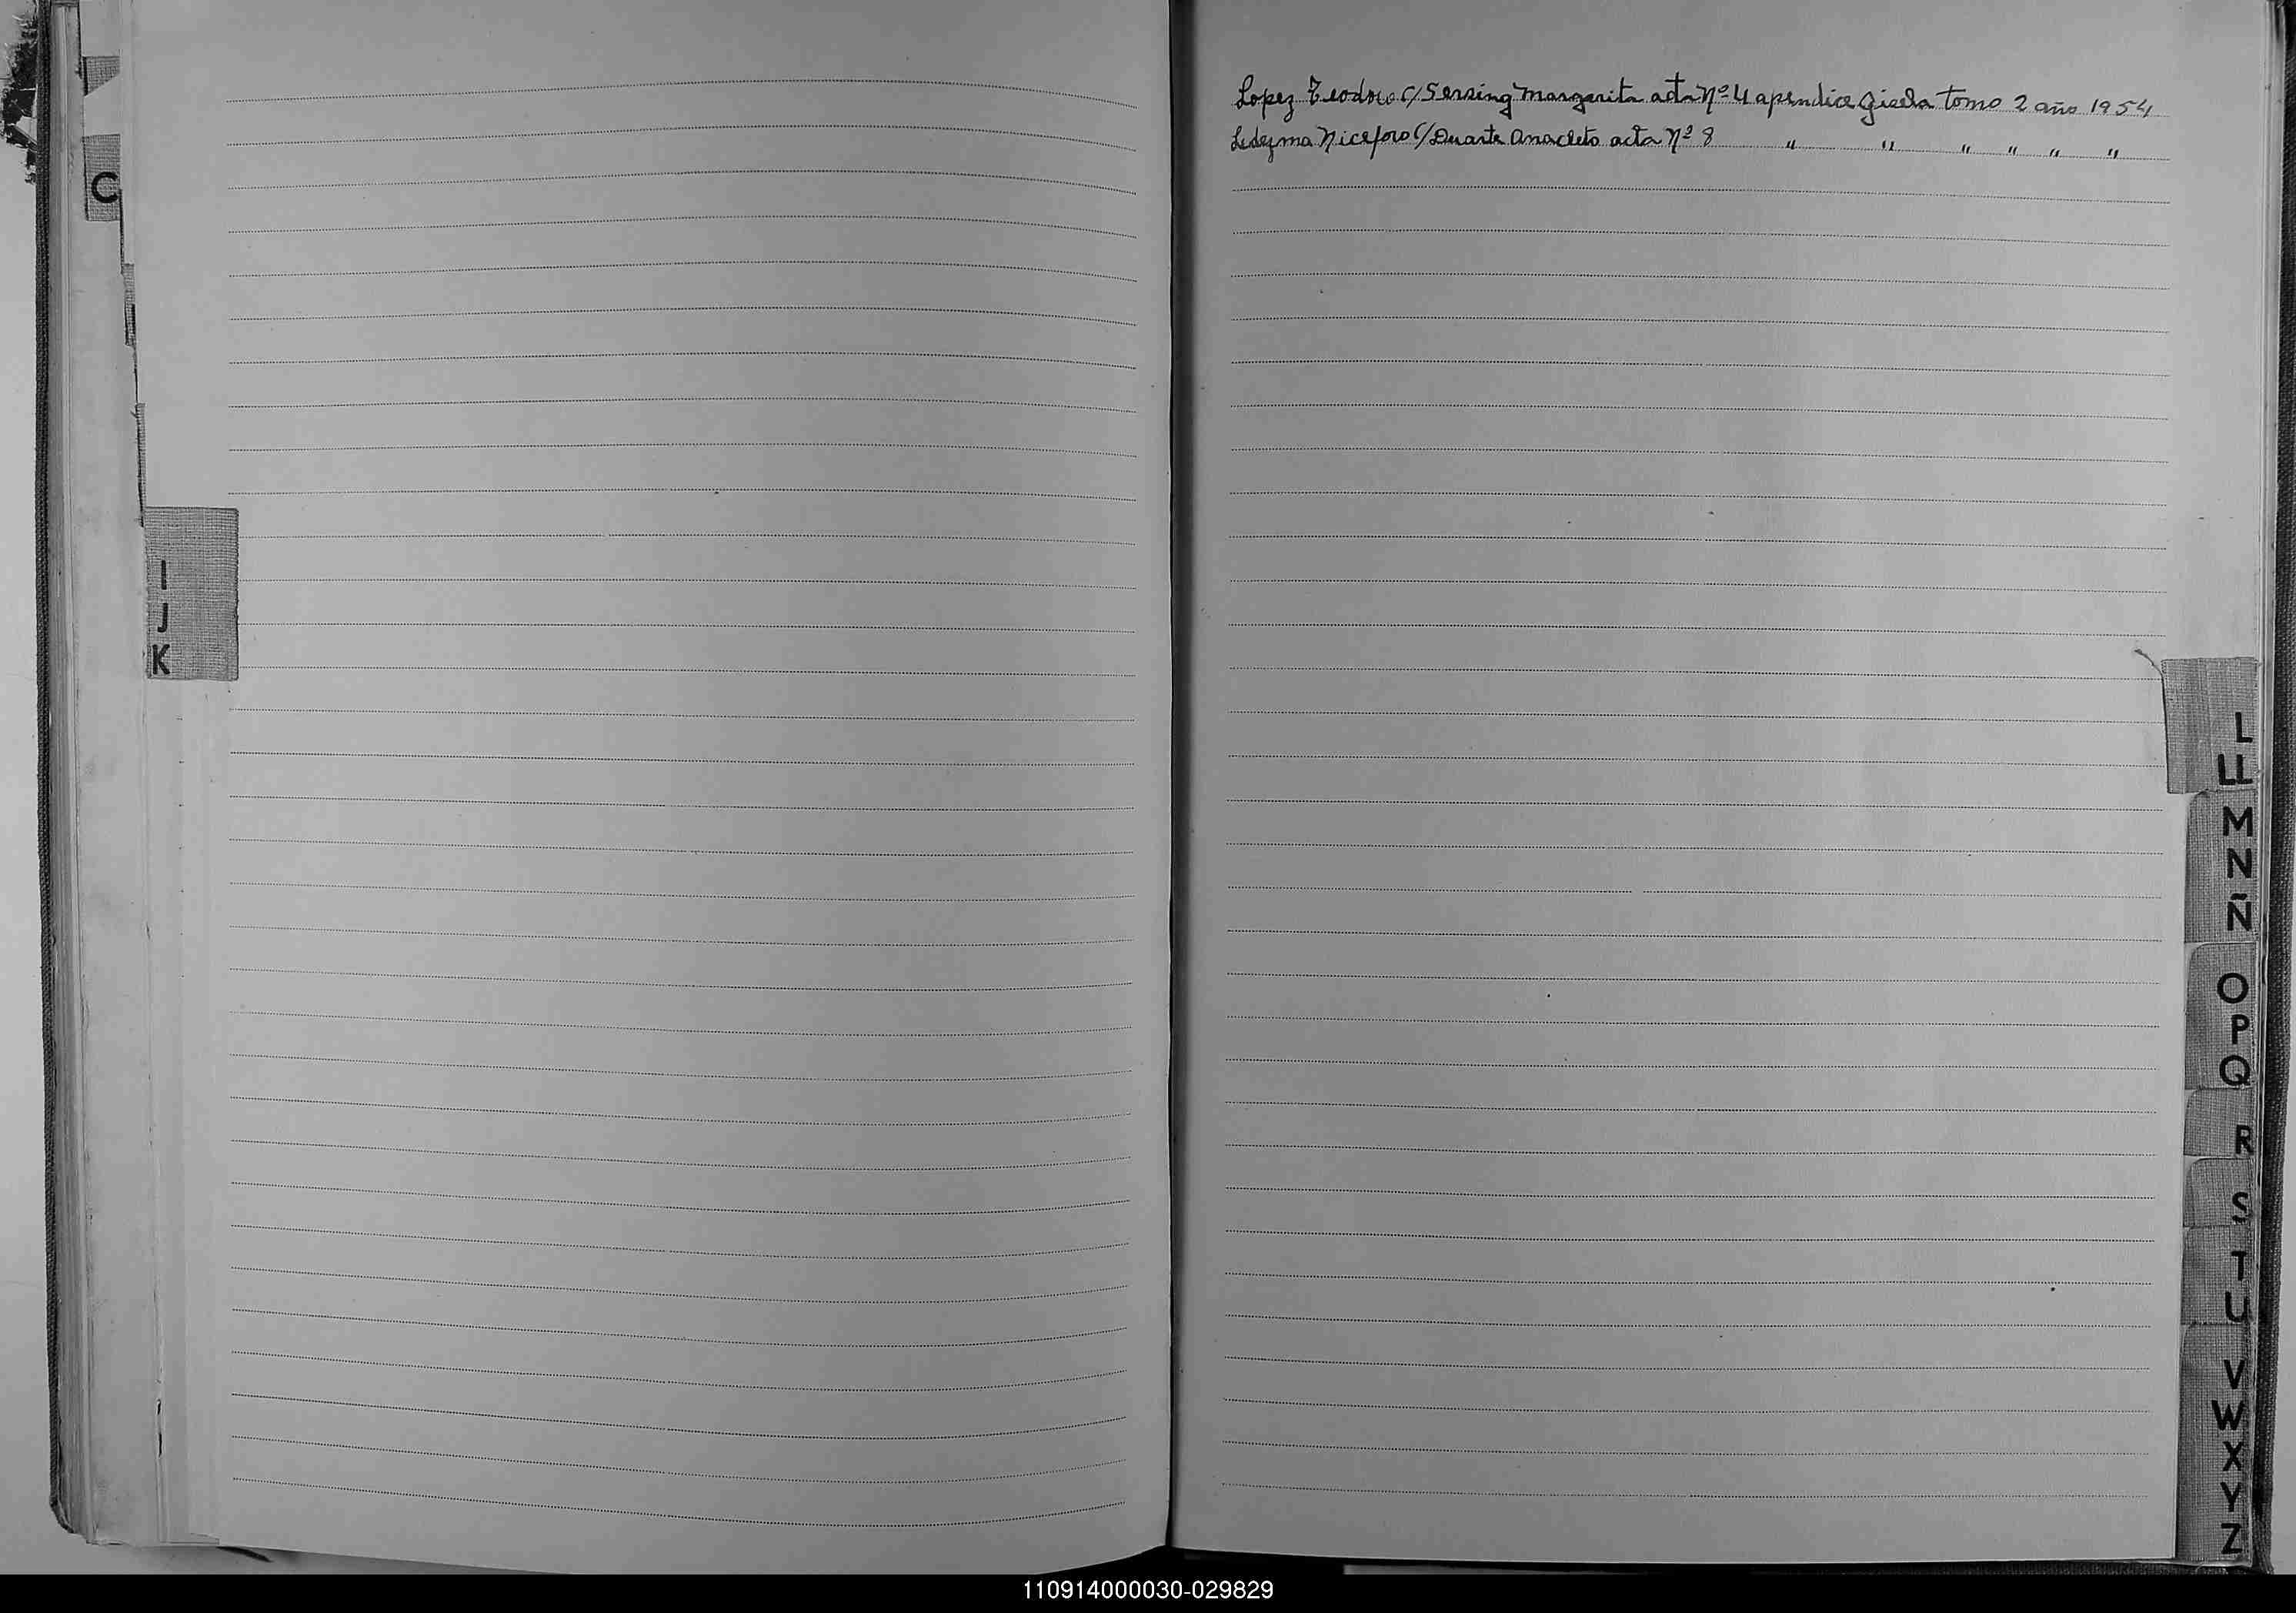 C
I
J
K
Lopez Teodoro c/ Sersing Margarita acta Nº 4 apendice Gisela tomo 2 año 1954
Ledezma Niceforo c/ Duarte Anacleto acta Nº 8 " " " " " "
L
LL
M
N
Ñ
O
P
Q
R
S
T
U
V
W
X
Y
Z
110914000030-029829